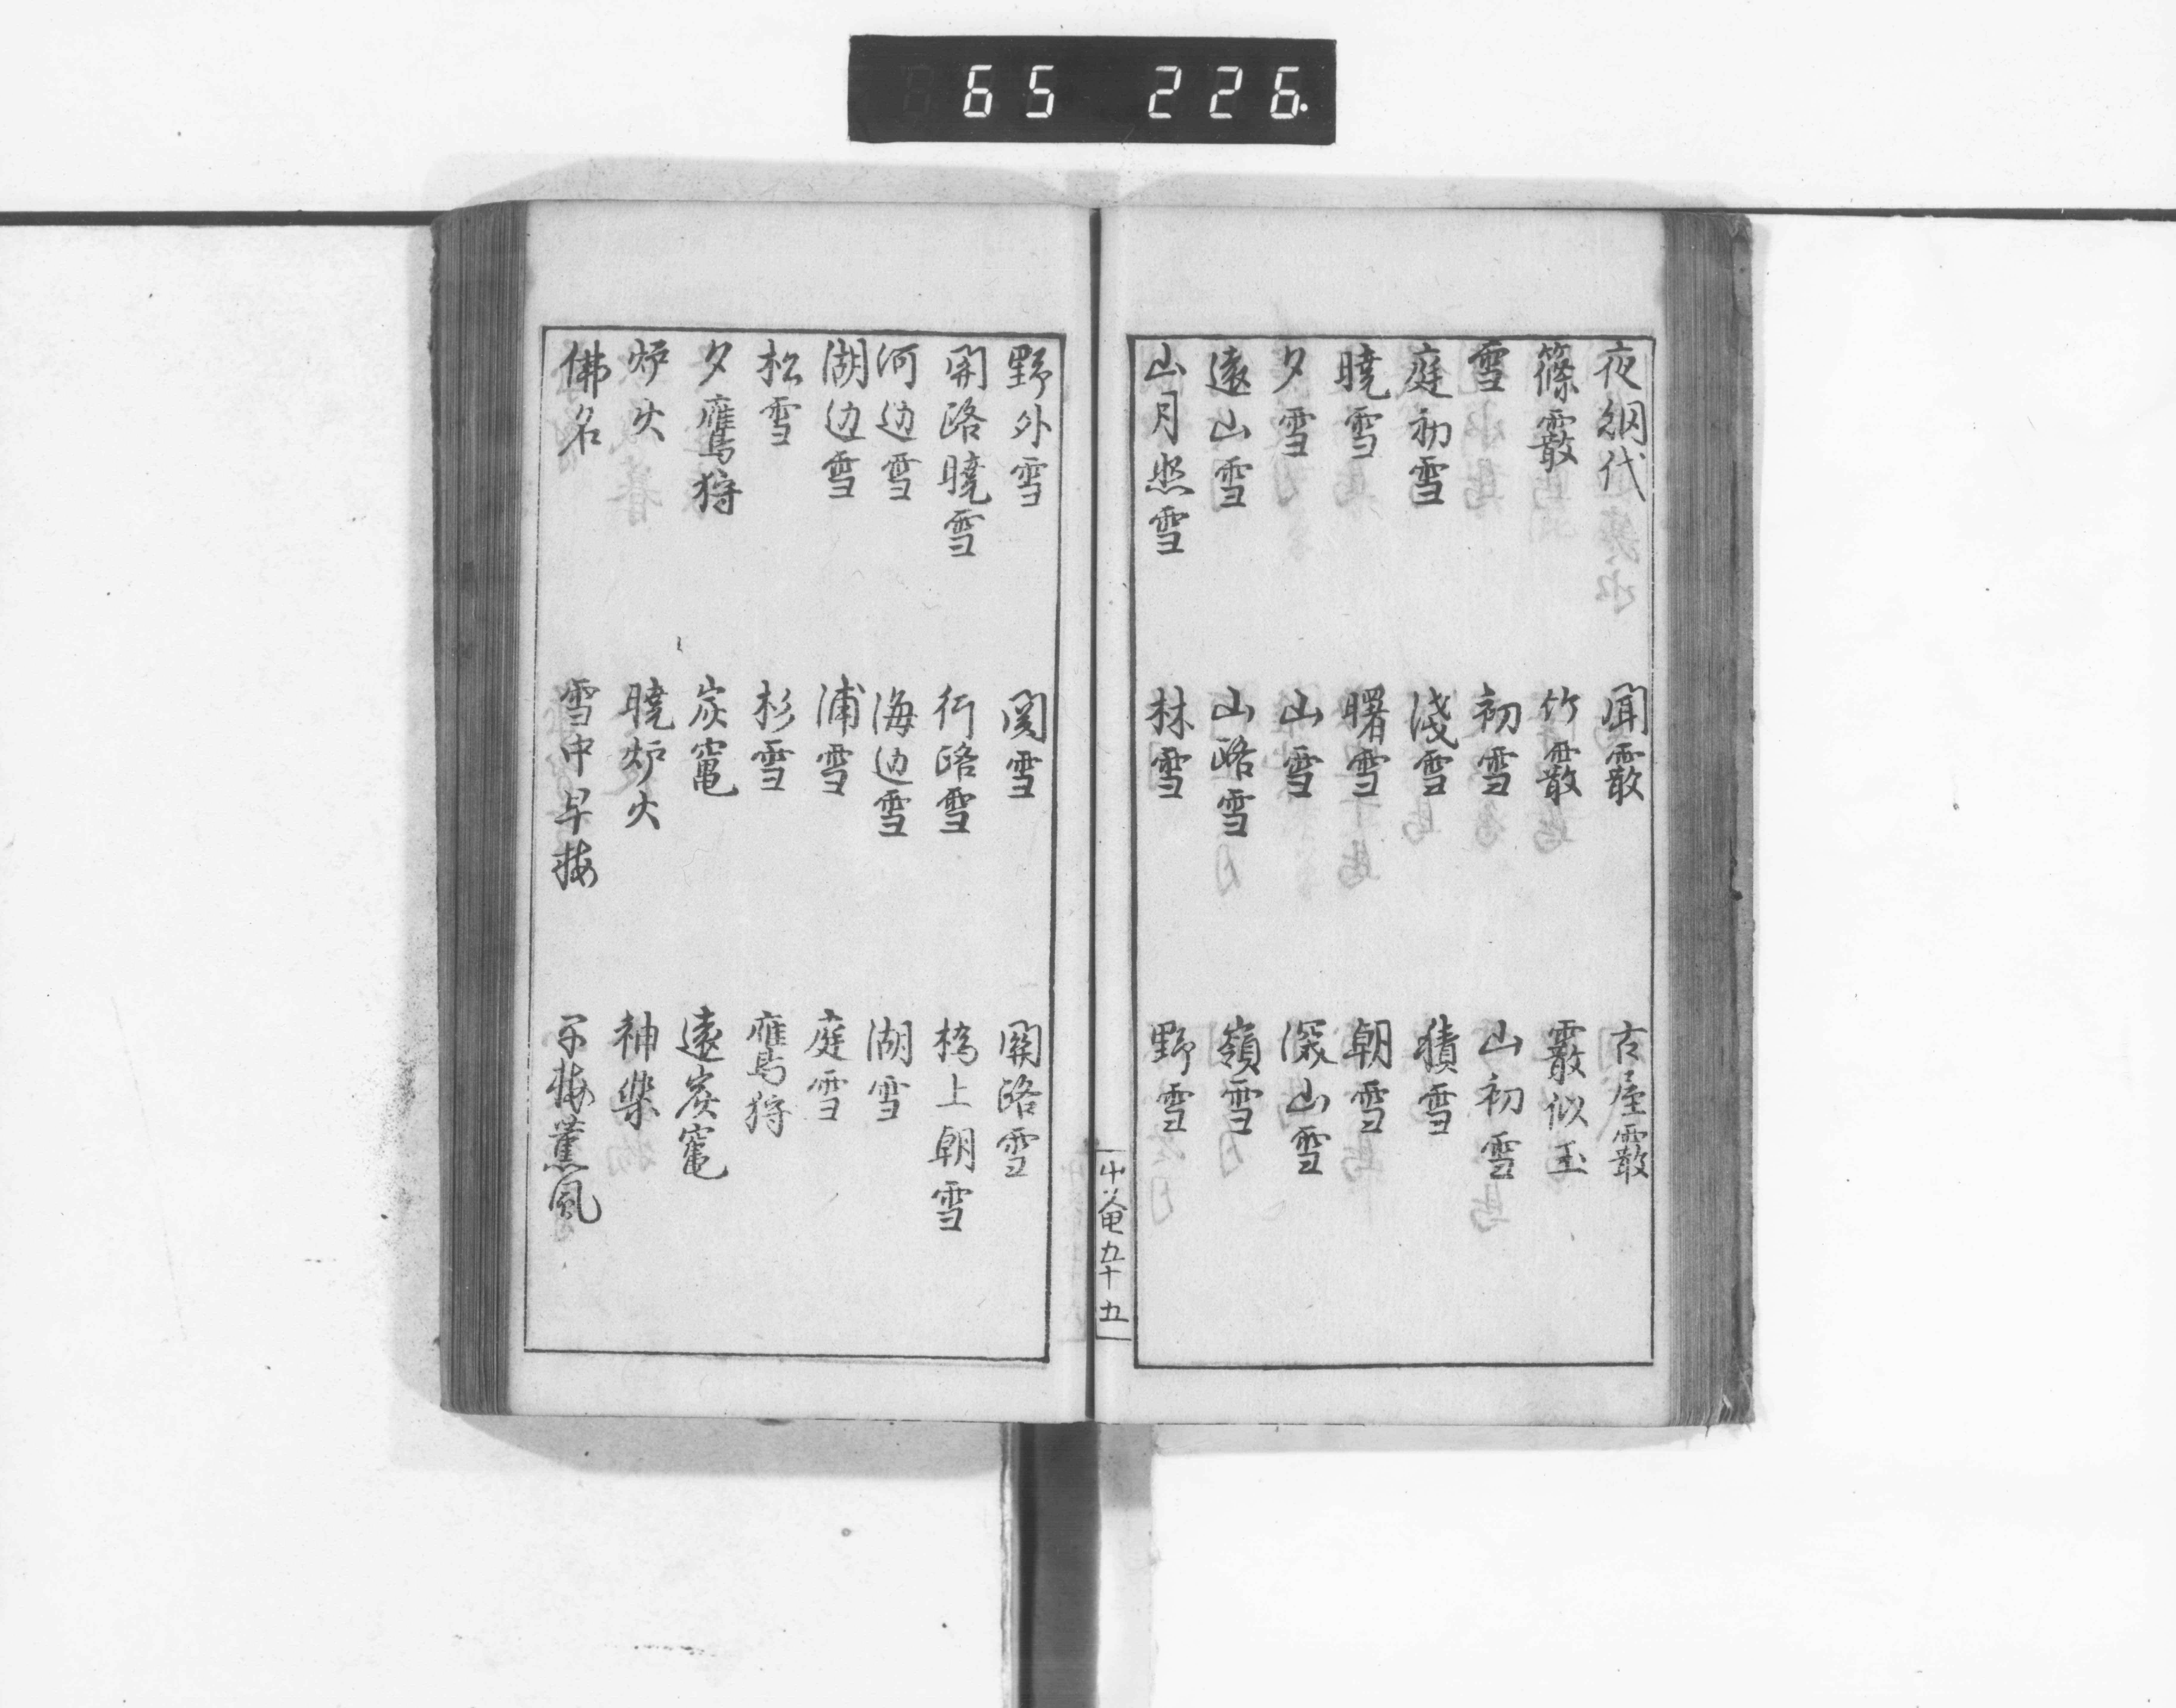 65 226.
夜網代 聞霰 古屋霰
篠霰 竹霰 霰似玉
雪 初雪 山初雪
庭初雪 浅雪 積雪
暁雪 曙雪 朝雪
夕雪 山雪 深山雪
遠山雪 山路雪 嶺雪
山月照雪 林雪 野雪
五十五
野外雪 関雪 関路雪
関路暁雪 行路雪 橋上朝雪
河辺雪 海辺雪 湖雪
湖辺雪 浦雪 庭雪
松雪 杉雪 鷹狩
夕鷹狩 炭竃 遠炭竃
炉火 暁炉火 神楽
佛名 雪中早梅 早梅薫風